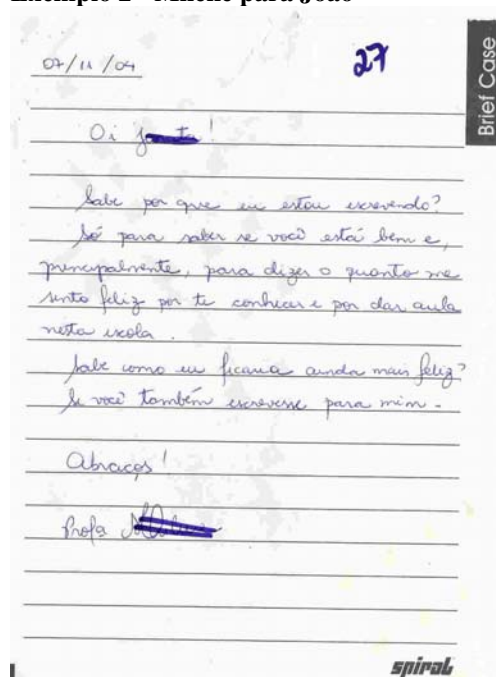 Exemplo 2 - Milene para João
07/11/04
27
Brief Case
Oi
Sabe por que eu estou escrevendo?
Só para saber se você está bem e,
principalmente, para dizer o quanto me
sinto feliz por te conhecer e por dar aula
nesta escola.
Sabe como eu ficaria ainda mais feliz?
Se você também escrevesse para mim.
Abraços!
Profa
spiral